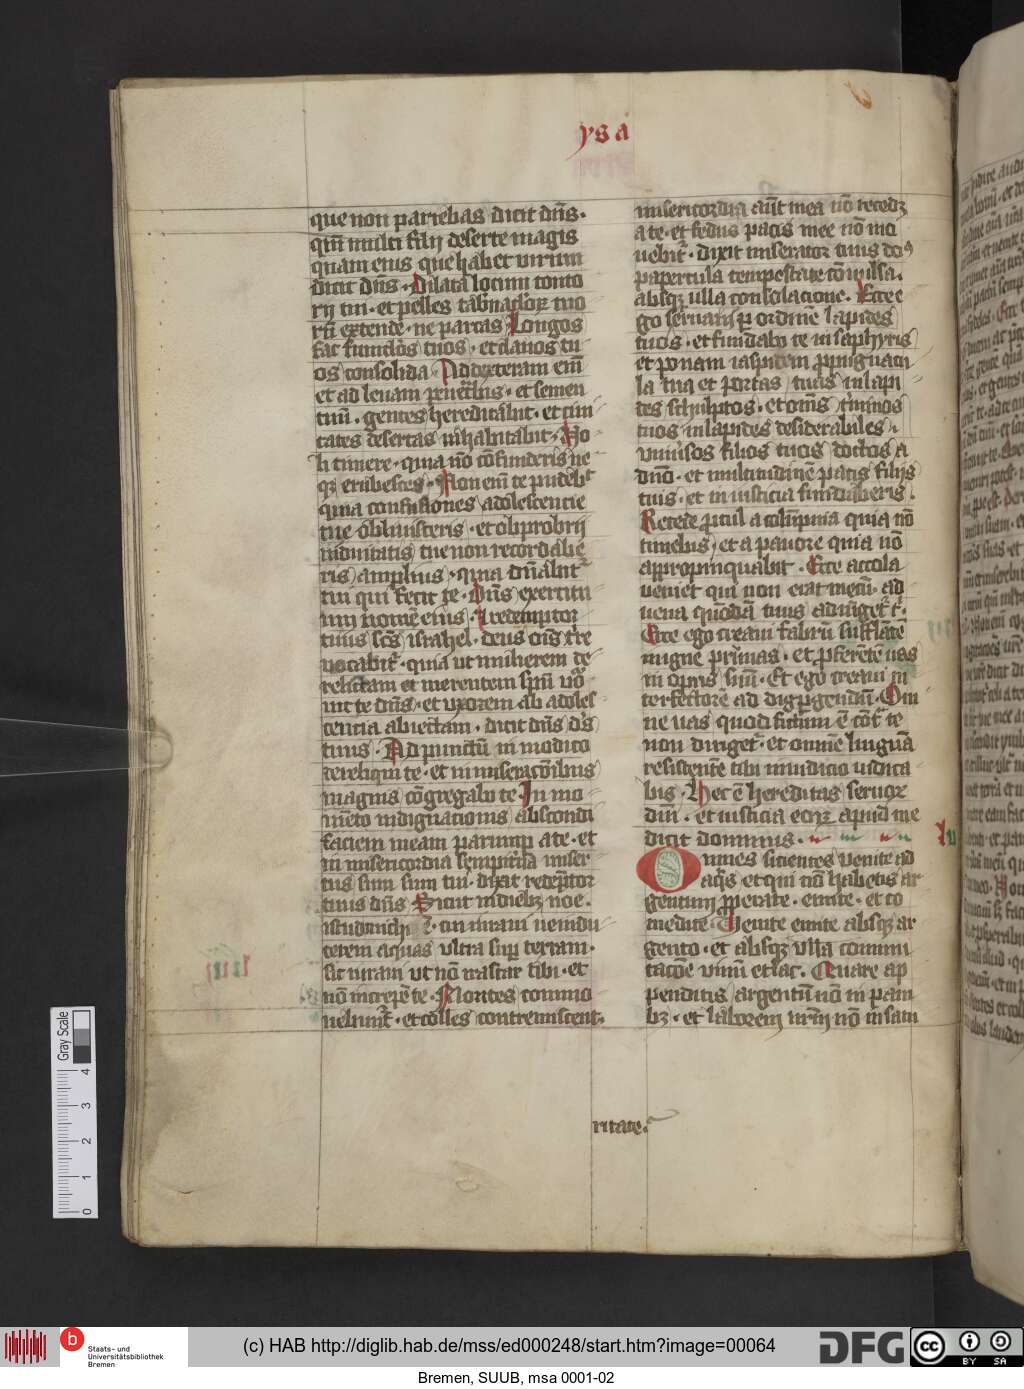 ysa
que non pariebas dicit dn̄s·
qm̄ multi filij deserte magis
quam eius que habet virum
dicit dn̄s· Dilata locum tento
rij tui· et pelles tab̄naclorꝝ tuo
rū extende· ne parcas Longos
fac funic̄los tuos· et clauos tu
os consolida· Ad dexteram em̄
et ad leuam penet̄bis· et semen
tuū· gentes hereditabit· et ciui
tates desertas inhabitabit· No
li timere· quia nō cōfunderis ne
qꝫ erubesces· Non em̄ te pudebt
quia confusionis adolescencie
tue obliuisceris· et obprobrij
uiduitatis tue non recordabe
ris amplius· quia dn̄abit᷑
tui qui fecit te· Dn̄s exercitu
um nomē eius· et redemptor
tuus sc̄s israhel· deus om̄s tr̄e
vocabit᷑· quia ut mulierem de
relictam et merentem sp̄ū vo
uit te dn̄s· et vxorem ab adoles
cencia abiectam· dicit dn̄s ds̄
tuus· Ad punctū in modico
dereliqui te· et in miseracōibus
magnis cōgregabo te· In mo
mēto indignationis abscondi
faciem meam parump̄ a te· et
in misericordia sempit̄na miser
tus sum tui· dixit redēptor
tuus dn̄s· Sicut in diebꝫ noe·
istud michi ē· cui iuraui ne indu
cerem aquas vltra sup̄ terram·
sic iuraui ut nō irascar tibi· et
nō increpē te· Montes commo
uebunt᷑· et colles contremiscent·
misericordia aūt mea nō recedꝫ
a te· et fedus pacis mee nō mo
uebit᷑· dixit miserator tuus doꝰ
papercula tempestate cōuulsa·
absqꝫ vlla consolacione· Ecce e
go sternam p ordinē lapides
tuos· et fundabo te in saphyris
et ponam iaspidem ppugnacu
la tua et portas tuas in lapi
des sculptos· et om̄s t̄minos
tuos in lapides desiderabiles·
vniūsos filios tuos doctos a
dn̄o· et multitudinē pacis filijs
tuis· et in iusticia fundaberis·
Recede pcul a calūpnia quia nō
timebis· et a pauore quia nō
appropinquabit· Ecce accola
veniet qui non erat mecū· ad
uena quōdā tuus adiūget᷑ t̄·
Ecce ego creaui fabrū sufflātē
in igne prunas· et pferētē vas
in opus suū· Et ego creaui in
terfectorē ad disp̄gendū· Om
ne uas quod fictum ē cōt̄ te
non dirigit᷑· et omnē linguā
resistentē tibi in iudicio iudica
bis· Hec ē hereditas seruorꝝ
dn̄i· et iusticia eorꝝ apud me
dicit dominus·
Omnes sicientes venite ad
aqs̄ et qui nō habetis ar
gentum pperate· emite· et co
medite· Venite emite absqꝫ ar
gento· et absqꝫ vlla commu
tacōe vinū et lac· Quare ap
penditis argentū nō in pani
bꝫ· et laborem ur̄m nō in satu
lv
liiij
ritate·
Gray Scale
0 1 2 3 4
Staats- und
Universitätsbibliothek
Bremen
(c) HAB http://diglib.hab.de/mss/ed000248/start.htm?image=00064
DFG
cc BY SA
Bremen, SUUB, msa 0001-02